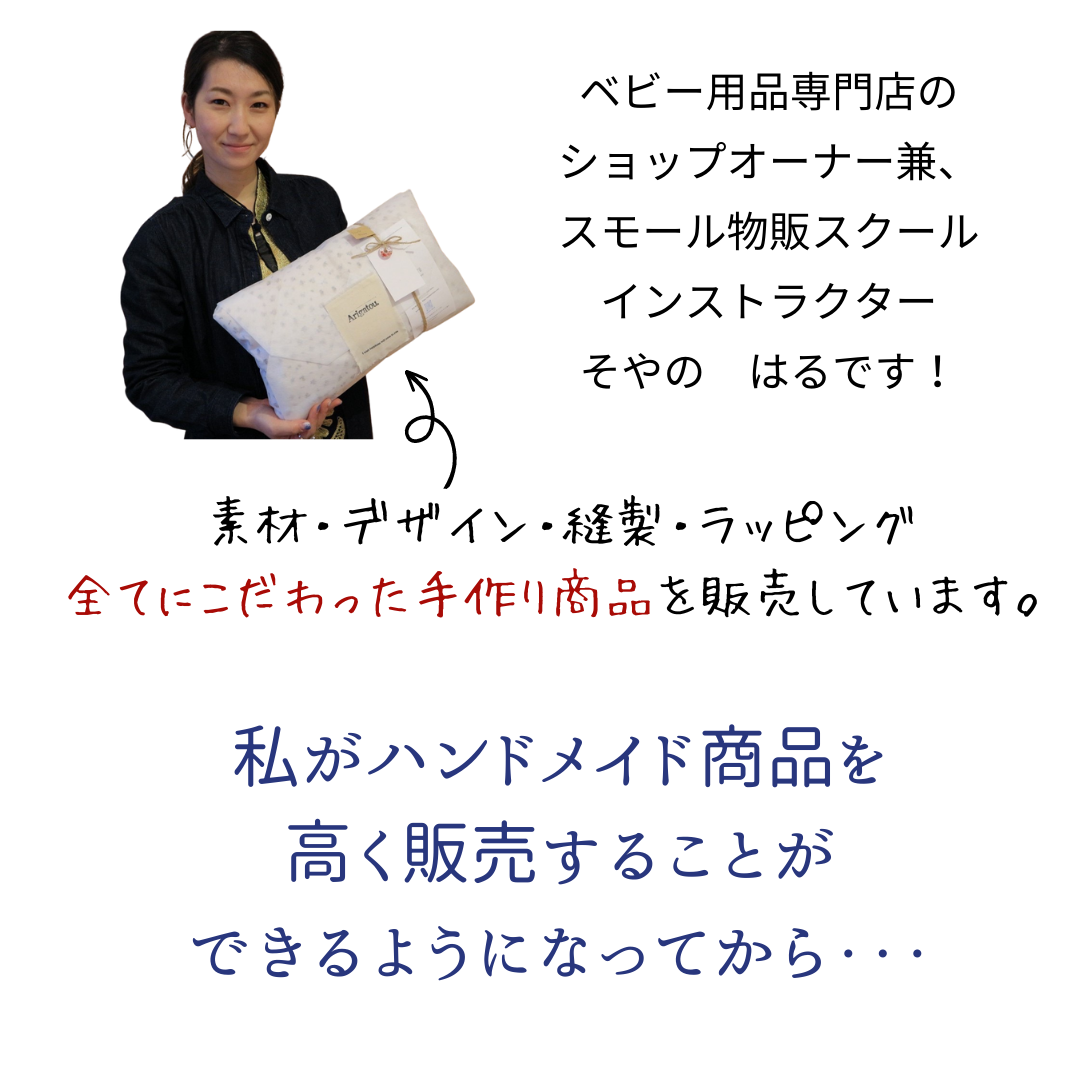 ベビー用品専門店の
ショップオーナー兼、
スモール物販スクール
インストラクター
そやの　はるです！
Arigatou.
素材・デザイン・縫製・ラッピング
全てにこだわった手作り商品を販売しています。
私がハンドメイド商品を
高く販売することが
できるようになってから・・・